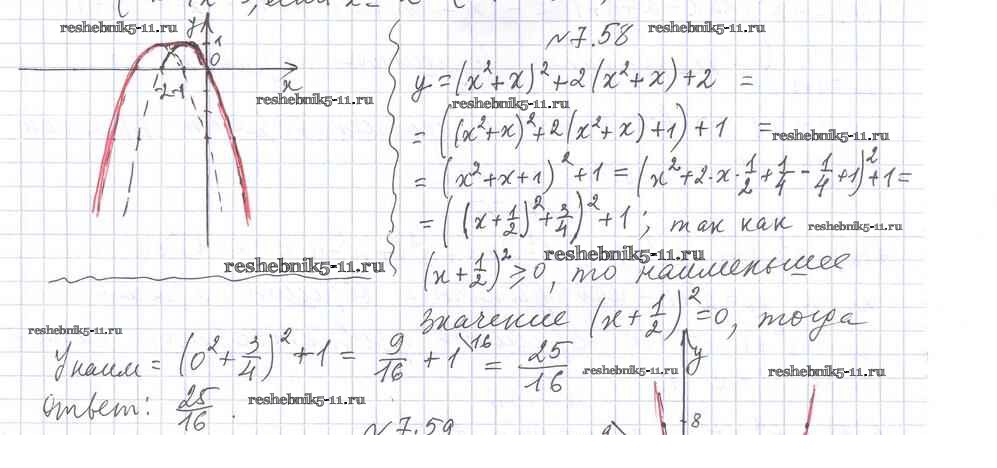 №7.58
y = (x²+x)² + 2(x²+x) + 2 =
= ((x²+x)² + 2(x²+x) + 1) + 1 =
= (x²+x+1)² + 1 = (x² + 2·x·1/2 + 1/4 - 1/4 + 1)² + 1 =
= ((x+1/2)² + 3/4)² + 1; так как
(x+1/2)² ≥ 0, то наименьшее
значение (x+1/2)² = 0, тогда
yнаим = (0² + 3/4)² + 1 = 9/16 + 1\16 = 25/16
ответ: 25/16.
№7.59
y
1
0
x
-2 -1
y
8
9
reshebnik5-11.ru
reshebnik5-11.ru
reshebnik5-11.ru
reshebnik5-11.ru
reshebnik5-11.ru
reshebnik5-11.ru
reshebnik5-11.ru
reshebnik5-11.ru
reshebnik5-11.ru
reshebnik5-11.ru
reshebnik5-11.ru
reshebnik5-11.ru